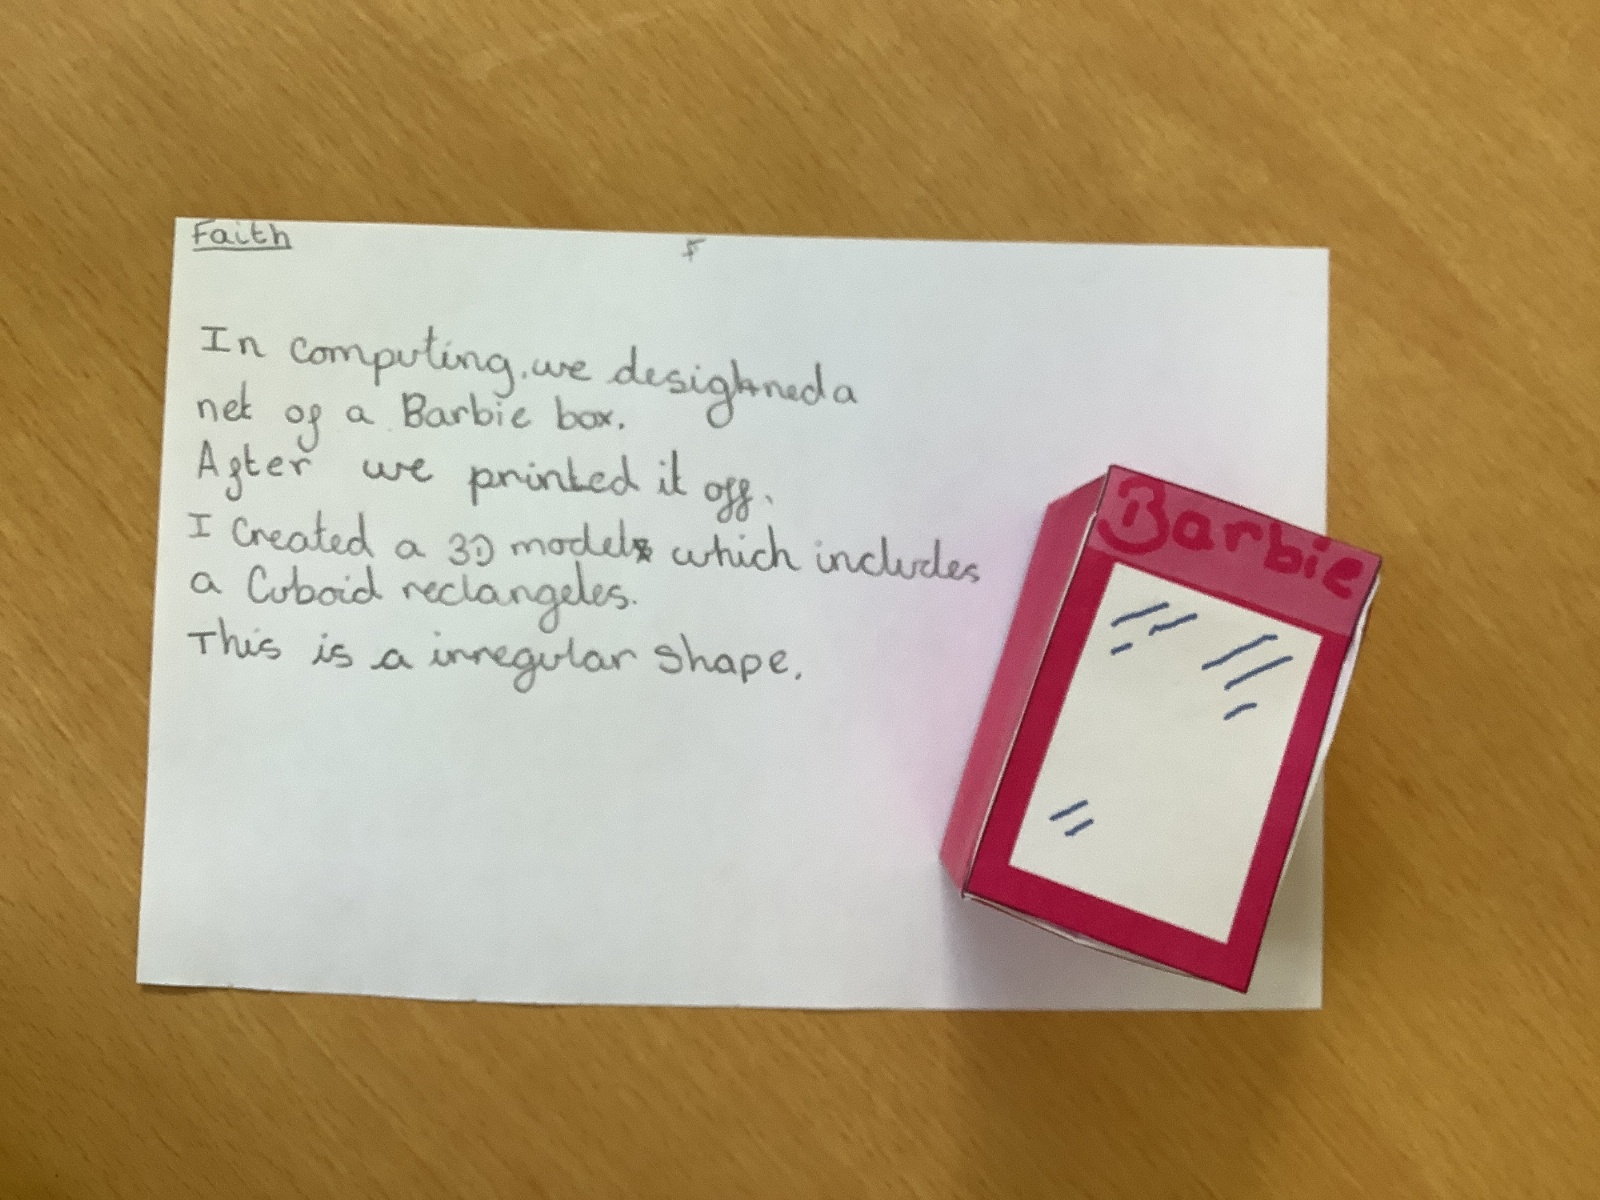 Faith
F
In computing, we designed a
net of a Barbie box.
After we printed it off.
I Created a 3D model which includes
a Cuboid reclangeles.
This is a irregular shape.
Barbie